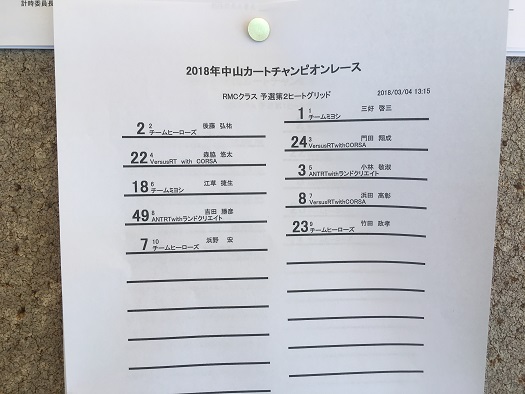 計時委員長
2018年中山カートチャンピオンレース
RMCクラス 予選第2ヒートグリッド 2018/03/04 13:15
1 1 三好 啓三
チームミヨシ
2 2 後藤 弘祐
チームヒーローズ
24 3 門田 翔成
VersusRTwithCORSA
22 4 森脇 悠太
VersusRT with CORSA
3 5 小林 敬淑
ANTRTwithランドクリエイト
18 6 江草 捷生
チームミヨシ
8 7 浜田 高彰
VersusRTwithCORSA
49 8 吉田 勝彦
ANTRTwithランドクリエイト
23 9 竹田 政孝
チームヒーローズ
7 10 浜野 安
チームヒーローズ